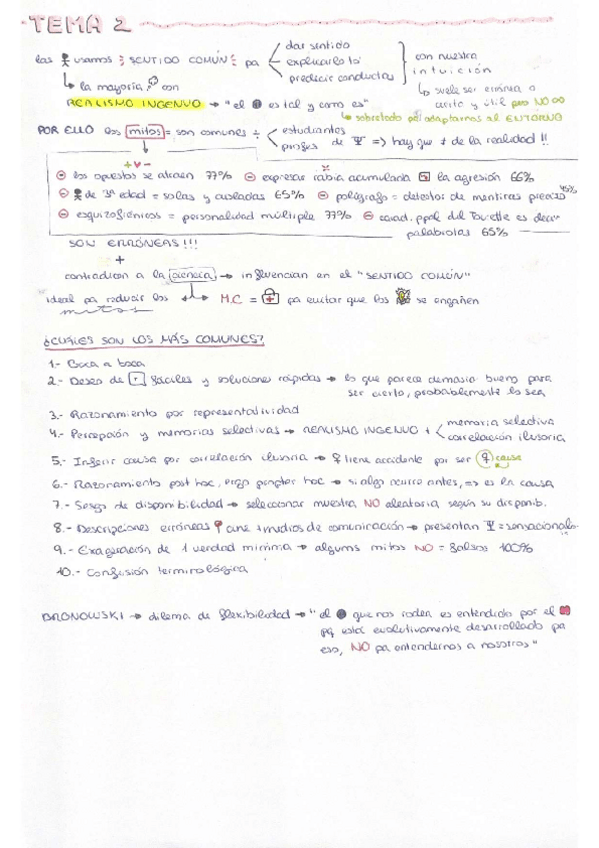 TEMA 2
las usamos SENTIDO COMÚN pa
dar sentido
explicarlo to
predecir conductas
con nuestra
intuición
↳ la mayoría con
↳ suele ser errónea o
REALISMO INGENUO → "el es tal y como es"
cierto y útil pero NO ∞
↳ sobretodo pa adaptarnos al ENTORNO
POR ELLO los mitos = son comunes
estudiantes
profes
de Ψ => hay que ≠ de la realidad !!
+ v -
⊖ los opuestos se atraen 77% ⊖ expresar rabia acumulada la agresión 66%
⊖ de 3ª edad = solas y aisladas 65% ⊖ polígrafo = detector de mentiras preciso 45%
⊖ esquizofrénicos = personalidad múltiple 77% ⊖ caract. ppal del Tourette es decir
palabrotas 65%
SON ERRÓNEAS !!!
+
contradicen a la ciencia → influencian en el "SENTIDO COMÚN"
ideal pa reducir los → M.C = pa evitar que los se engañen
mitos
¿CUÁLES SON LOS MÁS COMUNES?
1.- Boca a boca
2.- Deseo de fáciles y soluciones rápidas → lo que parece demasia bueno para
ser cierto, probablemente lo sea
3.- Razonamiento por representatividad
4.- Percepción y memorias selectivas → REALISMO INGENUO +
memoria selectiva
correlación ilusoria
5.- Inferir causa por correlación ilusoria → ♀ tiene accidente por ser ♀ causa
6.- Razonamiento post hoc, ergo propter hoc → si algo ocurre antes, => es la causa
7.- Sesgo de disponibilidad → seleccionar muestra NO aleatoria según su disponib.
8.- Descripciones erróneas cine + medios de comunicación → presentan Ψ = sensacionalis.
9.- Exageración de 1 verdad mínima → algums mitos NO = falsos 100%
10.- Confusión terminológica
BRONOWSKI → dilema de flexibilidad → "el que nos rodea es entendido por el
pq está evolutivamente desarrollado pa
eso, NO pa entendernos a nosotros"